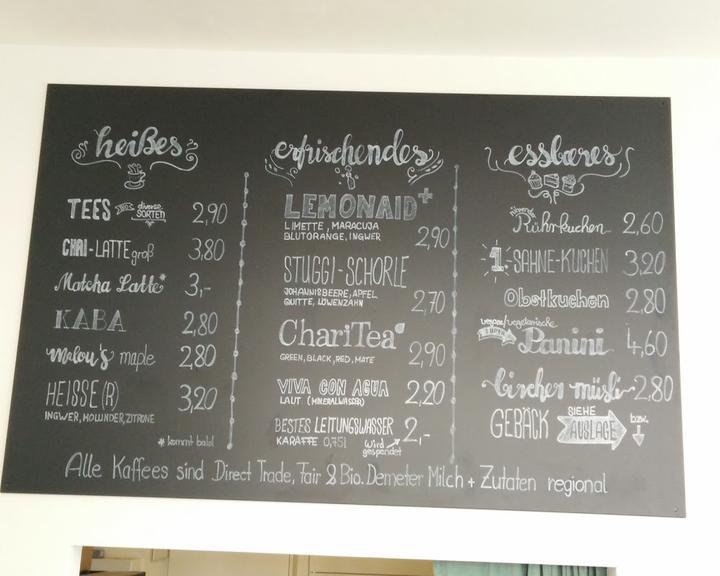 heißes
TEES BIO diverse SORTEN 2,90
CHAI-LATTE groß 3,80
Matcha Latte* 3,-
KABA 2,80
malou's maple 2,80
HEISSE(R) 3,20
INGWER, HOLUNDER, ZITRONE
*kommt bald
erfrischendes
LEMONAID+
LIMETTE, MARACUJA
BLUTORANGE, INGWER 2,90
STUGGI-SCHORLE
JOHANNISBEERE, APFEL
QUITTE, LÖWENZAHN 2,70
ChariTea
GREEN, BLACK, RED, MATE 2,90
VIVA CON AGUA 2,20
LAUT (MINERALWASSER)
BESTES LEITUNGSWASSER 2,-
KARAFFE 0,75l Wird gespendet
essbares
Rührkuchen 2,60
1 SAHNE-KUCHEN 3,20
Obstkuchen 2,80
vegane/vegetarische
Panini 4,60
bircher müsli 2,80
GEBÄCK SIEHE AUSLAGE bzw.
Alle Kaffees sind Direct Trade, Fair & Bio. Demeter Milch + Zutaten regional